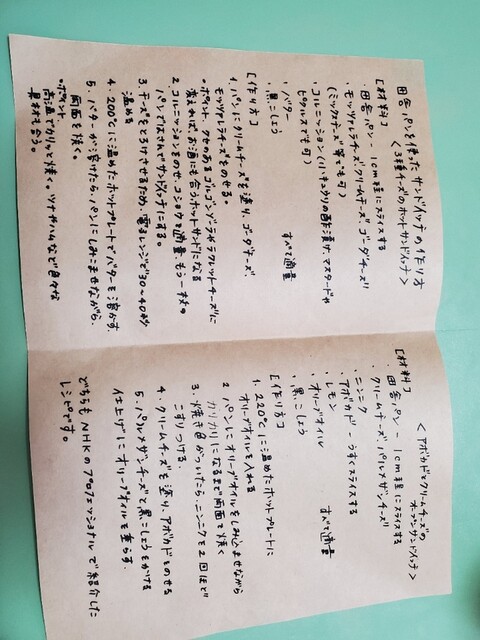 田舎パンを使ったサンドイッチの作り方
〈3種チーズのホットサンドイッチ〉
[材料]
・田舎パン - 1cm程にスライスする
・モッツァレラチーズ、クリームチーズ、ゴーダチーズ
(ミックスチーズ等でも可)
・コルニッション(小キュウリの酢漬け、マスタードや
ピクルスでも可)
・バター
・黒こしょう
すべて適量
[作り方]
1. パンにクリームチーズを塗り、ゴーダチーズ、
モッツァレラチーズをのせる。
・ポイント、クセのあるゴルゴンゾーラやラクレットチーズに
変えれば、お酒にも合うホットサンドになる
2. コルニッションをのせ、コショウを適量、もう一枚の
パンではさんでサンドイッチにする。
3. チーズをとろけさせるため、電子レンジで30〜40秒
温める
4. 200℃に温めたホットプレートでバターを溶かす.
5. バターが溶けたら、パンにしみこませながら、
両面を焼く。
・ポイント.
高温でカリッと焼く。ツナやハムなど色々な
具材が合う。
〈アボカドとクリームチーズの
オープンサンドイッチ〉
[材料]
・田舎パン - 1cm程にスライスする
・クリームチーズ、パルメザンチーズ
・ニンニク
・アボカド - うすくスライスする
・レモン
・オリーブオイル
・黒こしょう
すべて適量
[作り方]
1. 220℃に温めたホットプレートに
オリーブオイルを入れる
2 パンにオリーブオイルをしみ込ませながら
カリカリになるまで両面で焼く
3. 焼き色がついたら、ニンニクを2回ほど
こすりつける
4. クリームチーズを塗り、アボカドをのせる
5. パルメザンチーズと黒こしょうをかける
仕上げにオリーブオイルを垂らす.
どちらもNHKのプロフェッショナルで紹介した
レシピです。